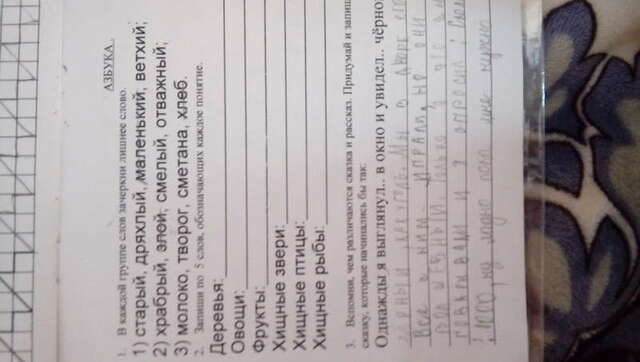 АЗБУКА .
1. В каждой группе слов зачеркни лишнее слово.
1) старый, дряхлый, маленький, ветхий;
2) храбрый, злой, смелый, отважный;
3) молоко, творог, сметана, хлеб.
2. Запиши по 5 слов, обозначающих каждое понятие.
Деревья:
Овощи:
Фрукты:
Хищные звери:
Хищные птицы:
Хищные рыбы:
3. Вспомни, чем различаются сказка и рассказ. Придумай и запиш
сказку, которые начинались бы так:
Однажды я выглянул.. в окно и увидел.. чёрно
Мы в дворе
Все с ним играли, но они
только я это
и я спросил: Скол
1000, ну ладно пока мне нужно